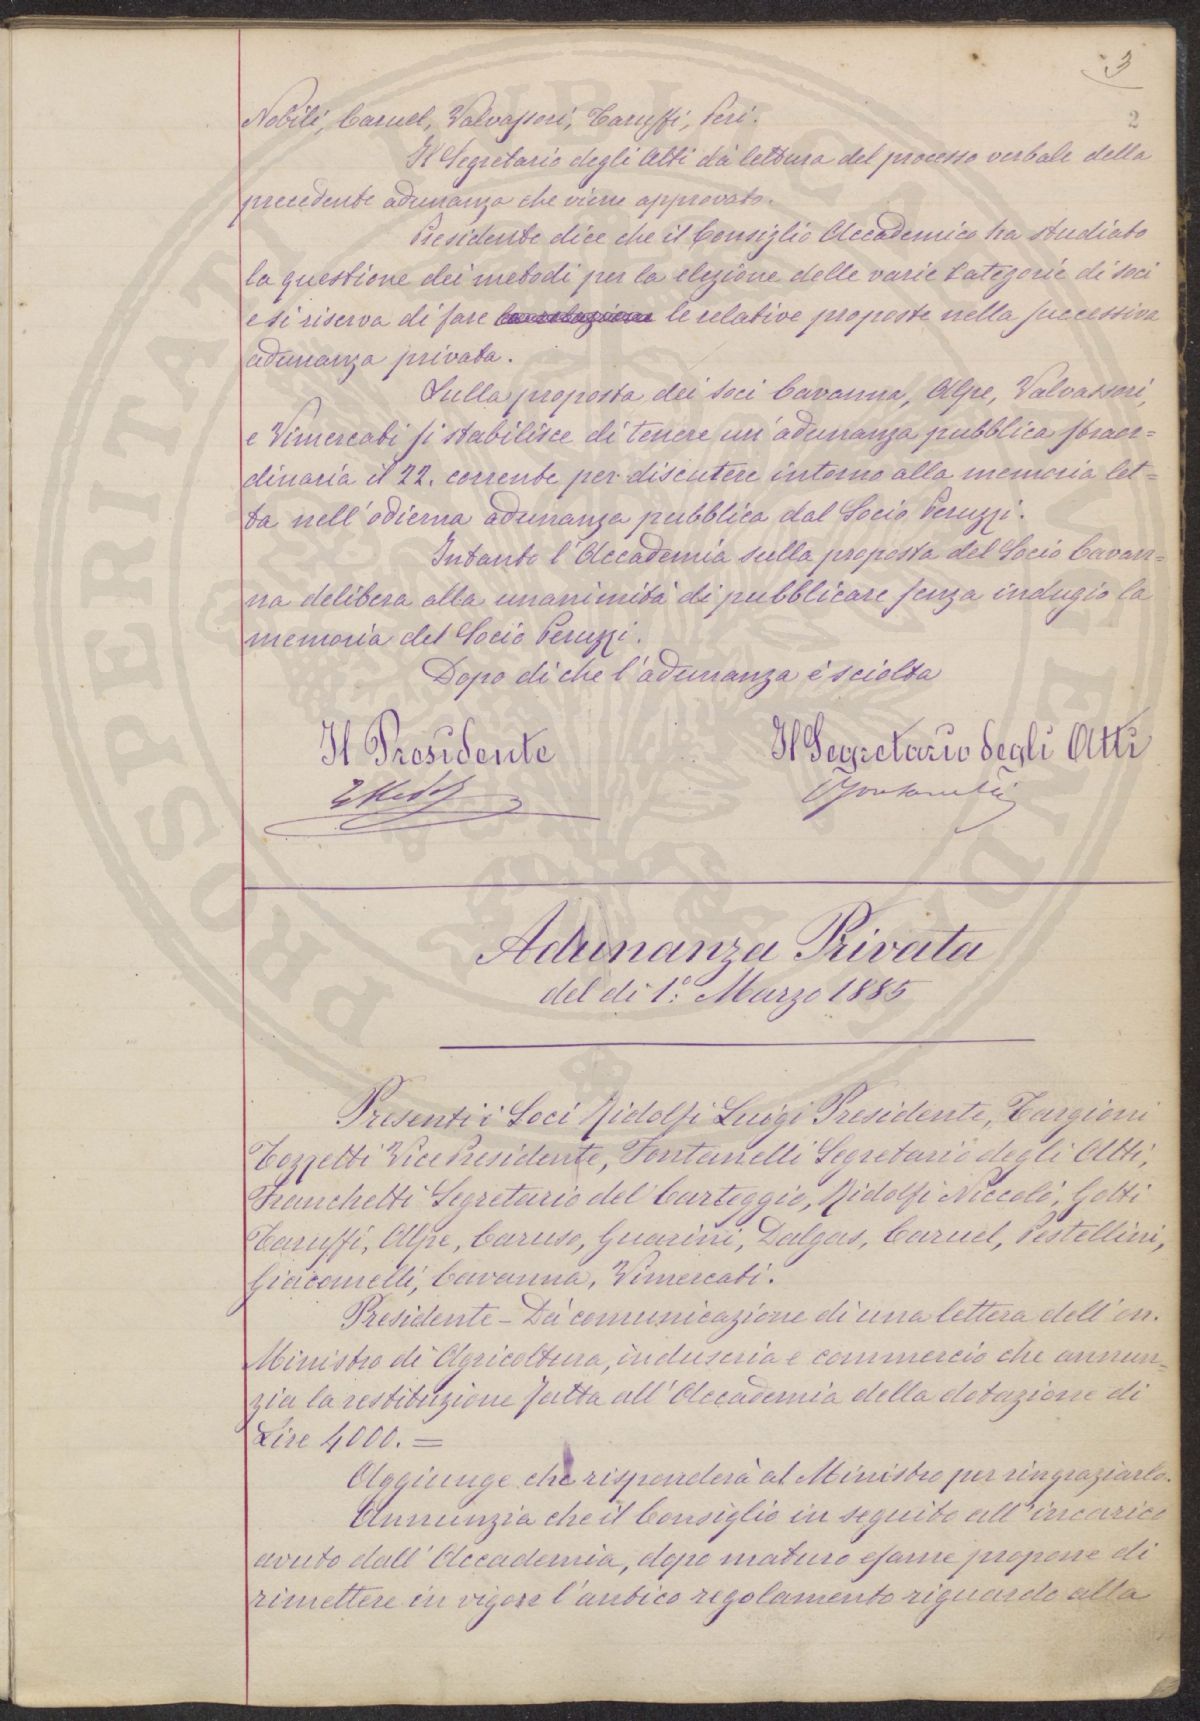 3
2
Nobili, Caruel, Valvassori, Taruffi, Peri.
Il Segretario degli Atti dà lettura del processo verbale della
precedente adunanza che viene approvato.
Presidente dice che il Consiglio Accademico ha studiato
la questione dei metodi per la elezione delle varie categorie di soci
e si riserva di fare le relative proposte nella successiva
adunanza privata.
Sulla proposta dei soci Cavanna, Alpe, Valvassori,
e Vimercati si stabilisce di tenere un'adunanza pubblica straor=
dinaria il 22. corrente per discutere intorno alla memoria let=
ta nell'odierna adunanza pubblica dal Socio Peruzzi.
Intanto l'Accademia sulla proposta del Socio Cavan=
na delibera alla unanimità di pubblicare senza indugio la
memoria del Socio Peruzzi.
Dopo di che l'adunanza è sciolta
Il Presidente
Il Segretario degli Atti
Adunanza Privata
del dì 1.° Marzo 1885
Presenti i Soci Ridolfi Luigi Presidente, Targioni
Tozzetti Vice Presidente, Fontanelli Segretario degli Atti,
Franchetti Segretario del Carteggio, Ridolfi Niccolò, Gotti
Taruffi, Alpe, Caruso, Guarini, Dalgas, Caruel, Pestellini,
Giacomelli, Cavanna, Vimercati.
Presidente - Dà comunicazione di una lettera dell'on.
Ministro di Agricoltura, industria e commercio che annun=
zia la restituzione fatta all'Accademia della dotazione di
Lire 4000. =
Aggiunge che risponderà al Ministro per ringraziarlo.
Annunzia che il Consiglio in seguito all'incarico
avuto dall'Accademia, dopo maturo esame propone di
rimettere in vigore l'antico regolamento riguardo alla
PROSPERITATI PUBLICAE AUGENDAE